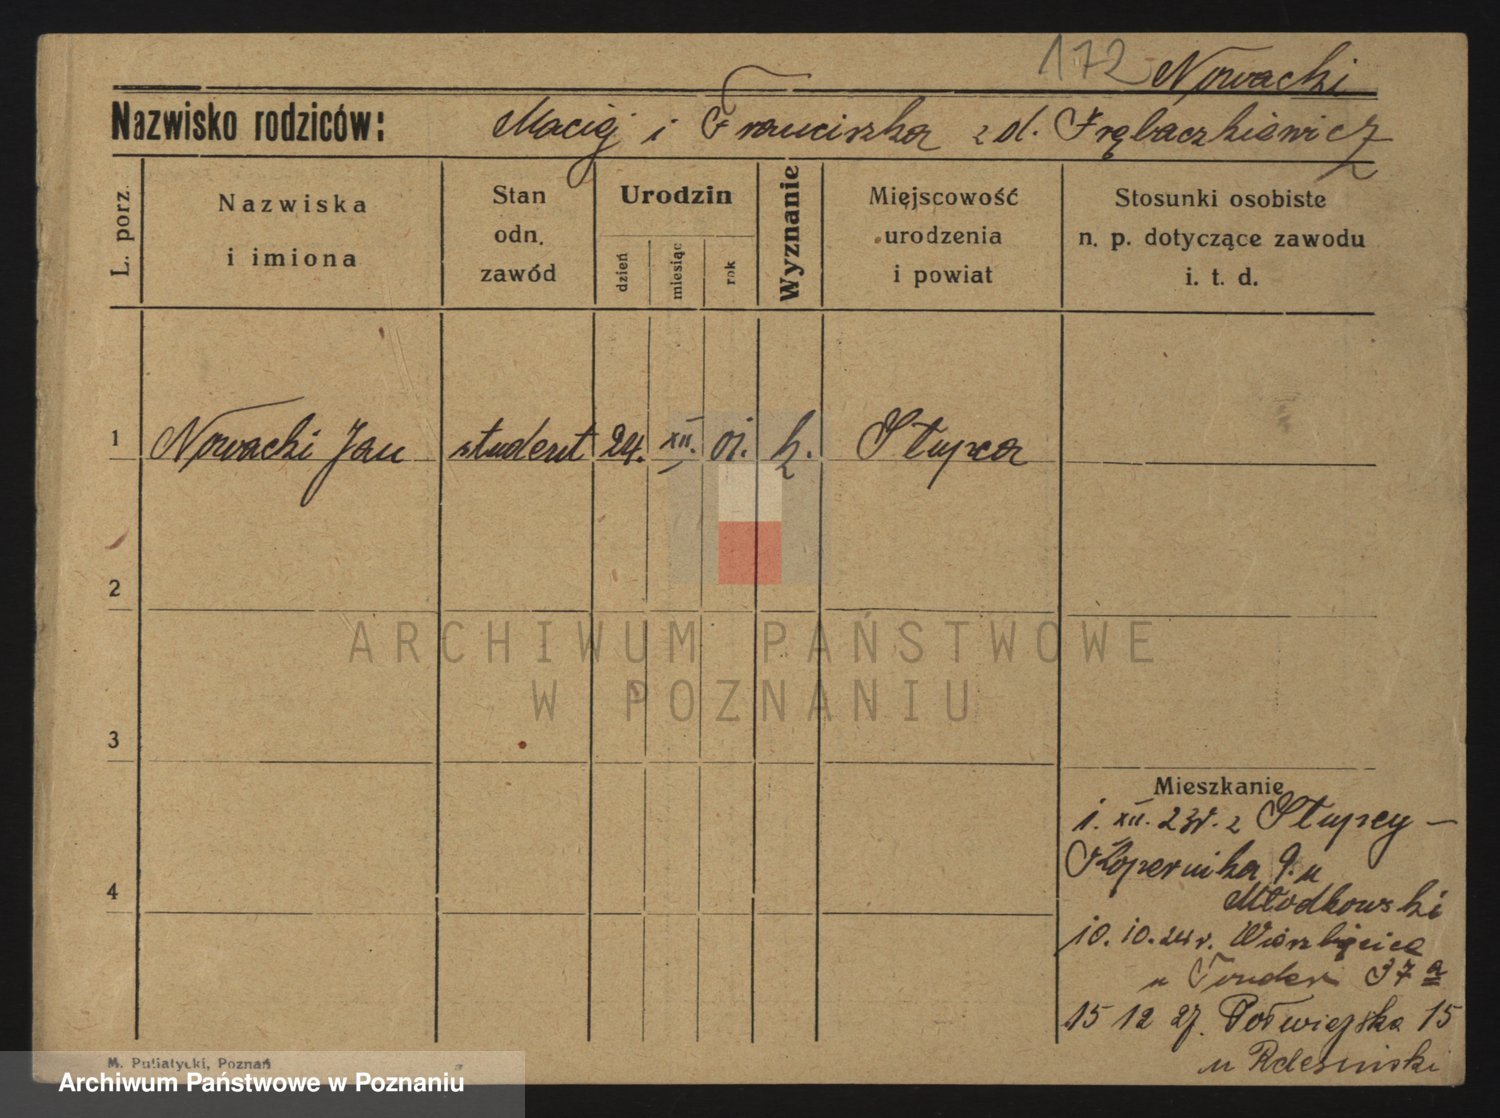 172 Nowacki
Nazwisko rodziców: Maciej i Franciszka z d. Frąbaczkiewicz
L. porz.
Nazwiska
i imiona
Stan
odn.
zawód
Urodzin
dzień
miesiąc
rok
Wyznanie
Miejscowość
urodzenia
i powiat
Stosunki osobiste
n. p. dotyczące zawodu
i. t. d.
1 Nowacki Jan student 24. XII. 01. k. Słupca
2
3
4
ARCHIWUM PAŃSTWOWE
W POZNANIU
Mieszkanie
1. XII. 23r. z Słupcy –
Kopernika 9. u
Młodkowski
10. 10. 24 r. Wierzbięcice
u Tonder 37 a
15 12 27. Półwiejska 15
u
M. Putiatycki, Poznań
Archiwum Państwowe w Poznaniu